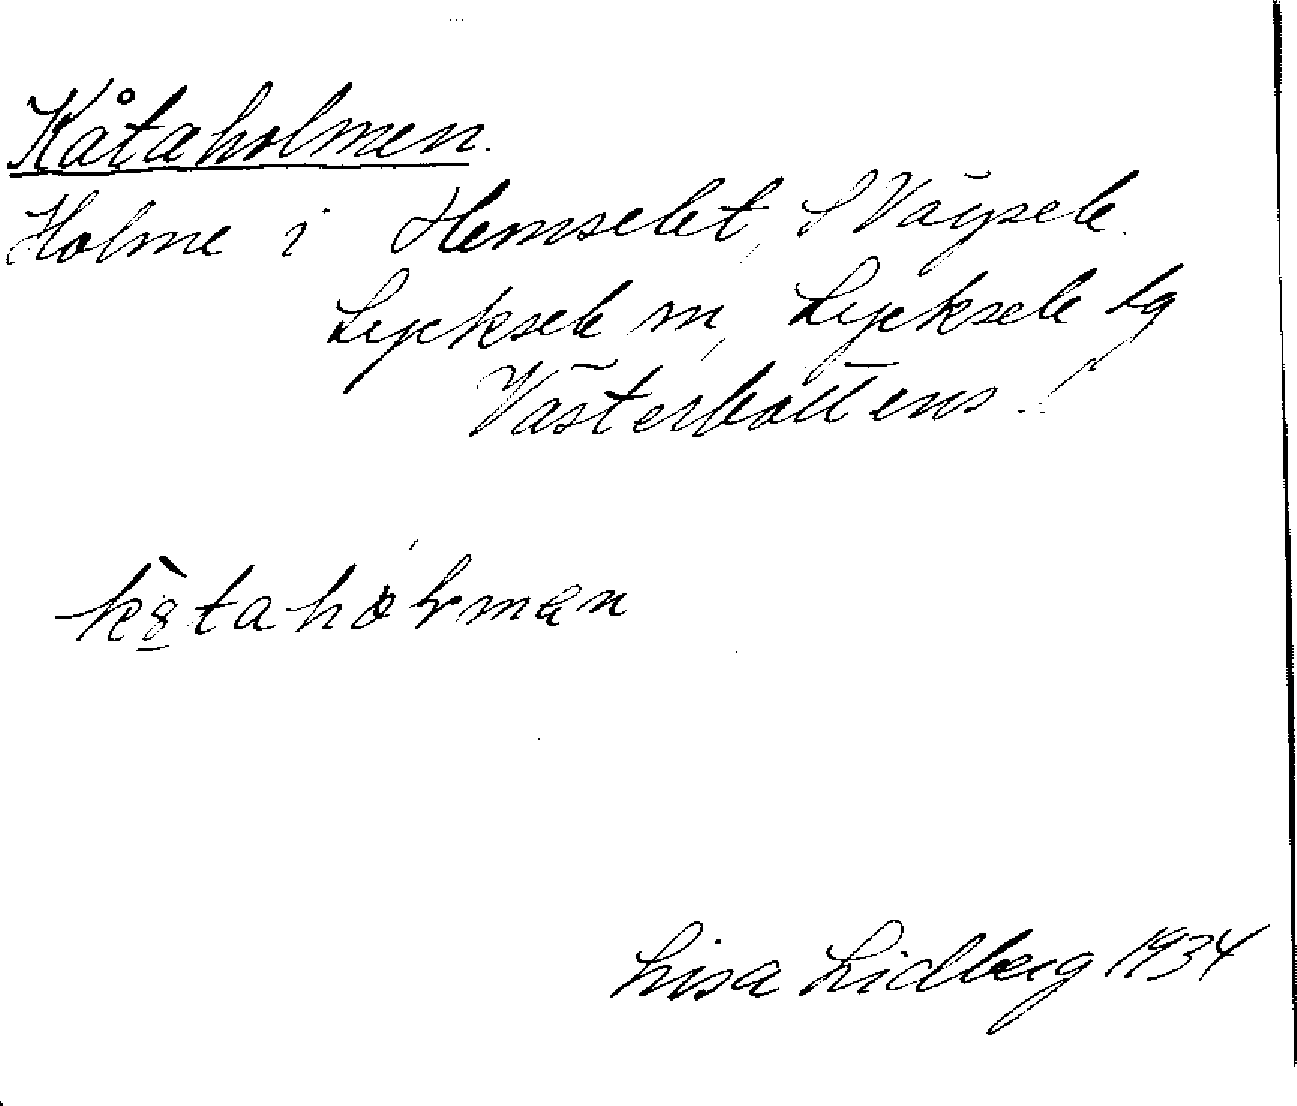 Kåtaholmen.
Holme i Hemselet, S Vägsele.
Lycksele sn, Lycksele lg
Västerbottens l
Lisa Lidberg 1934